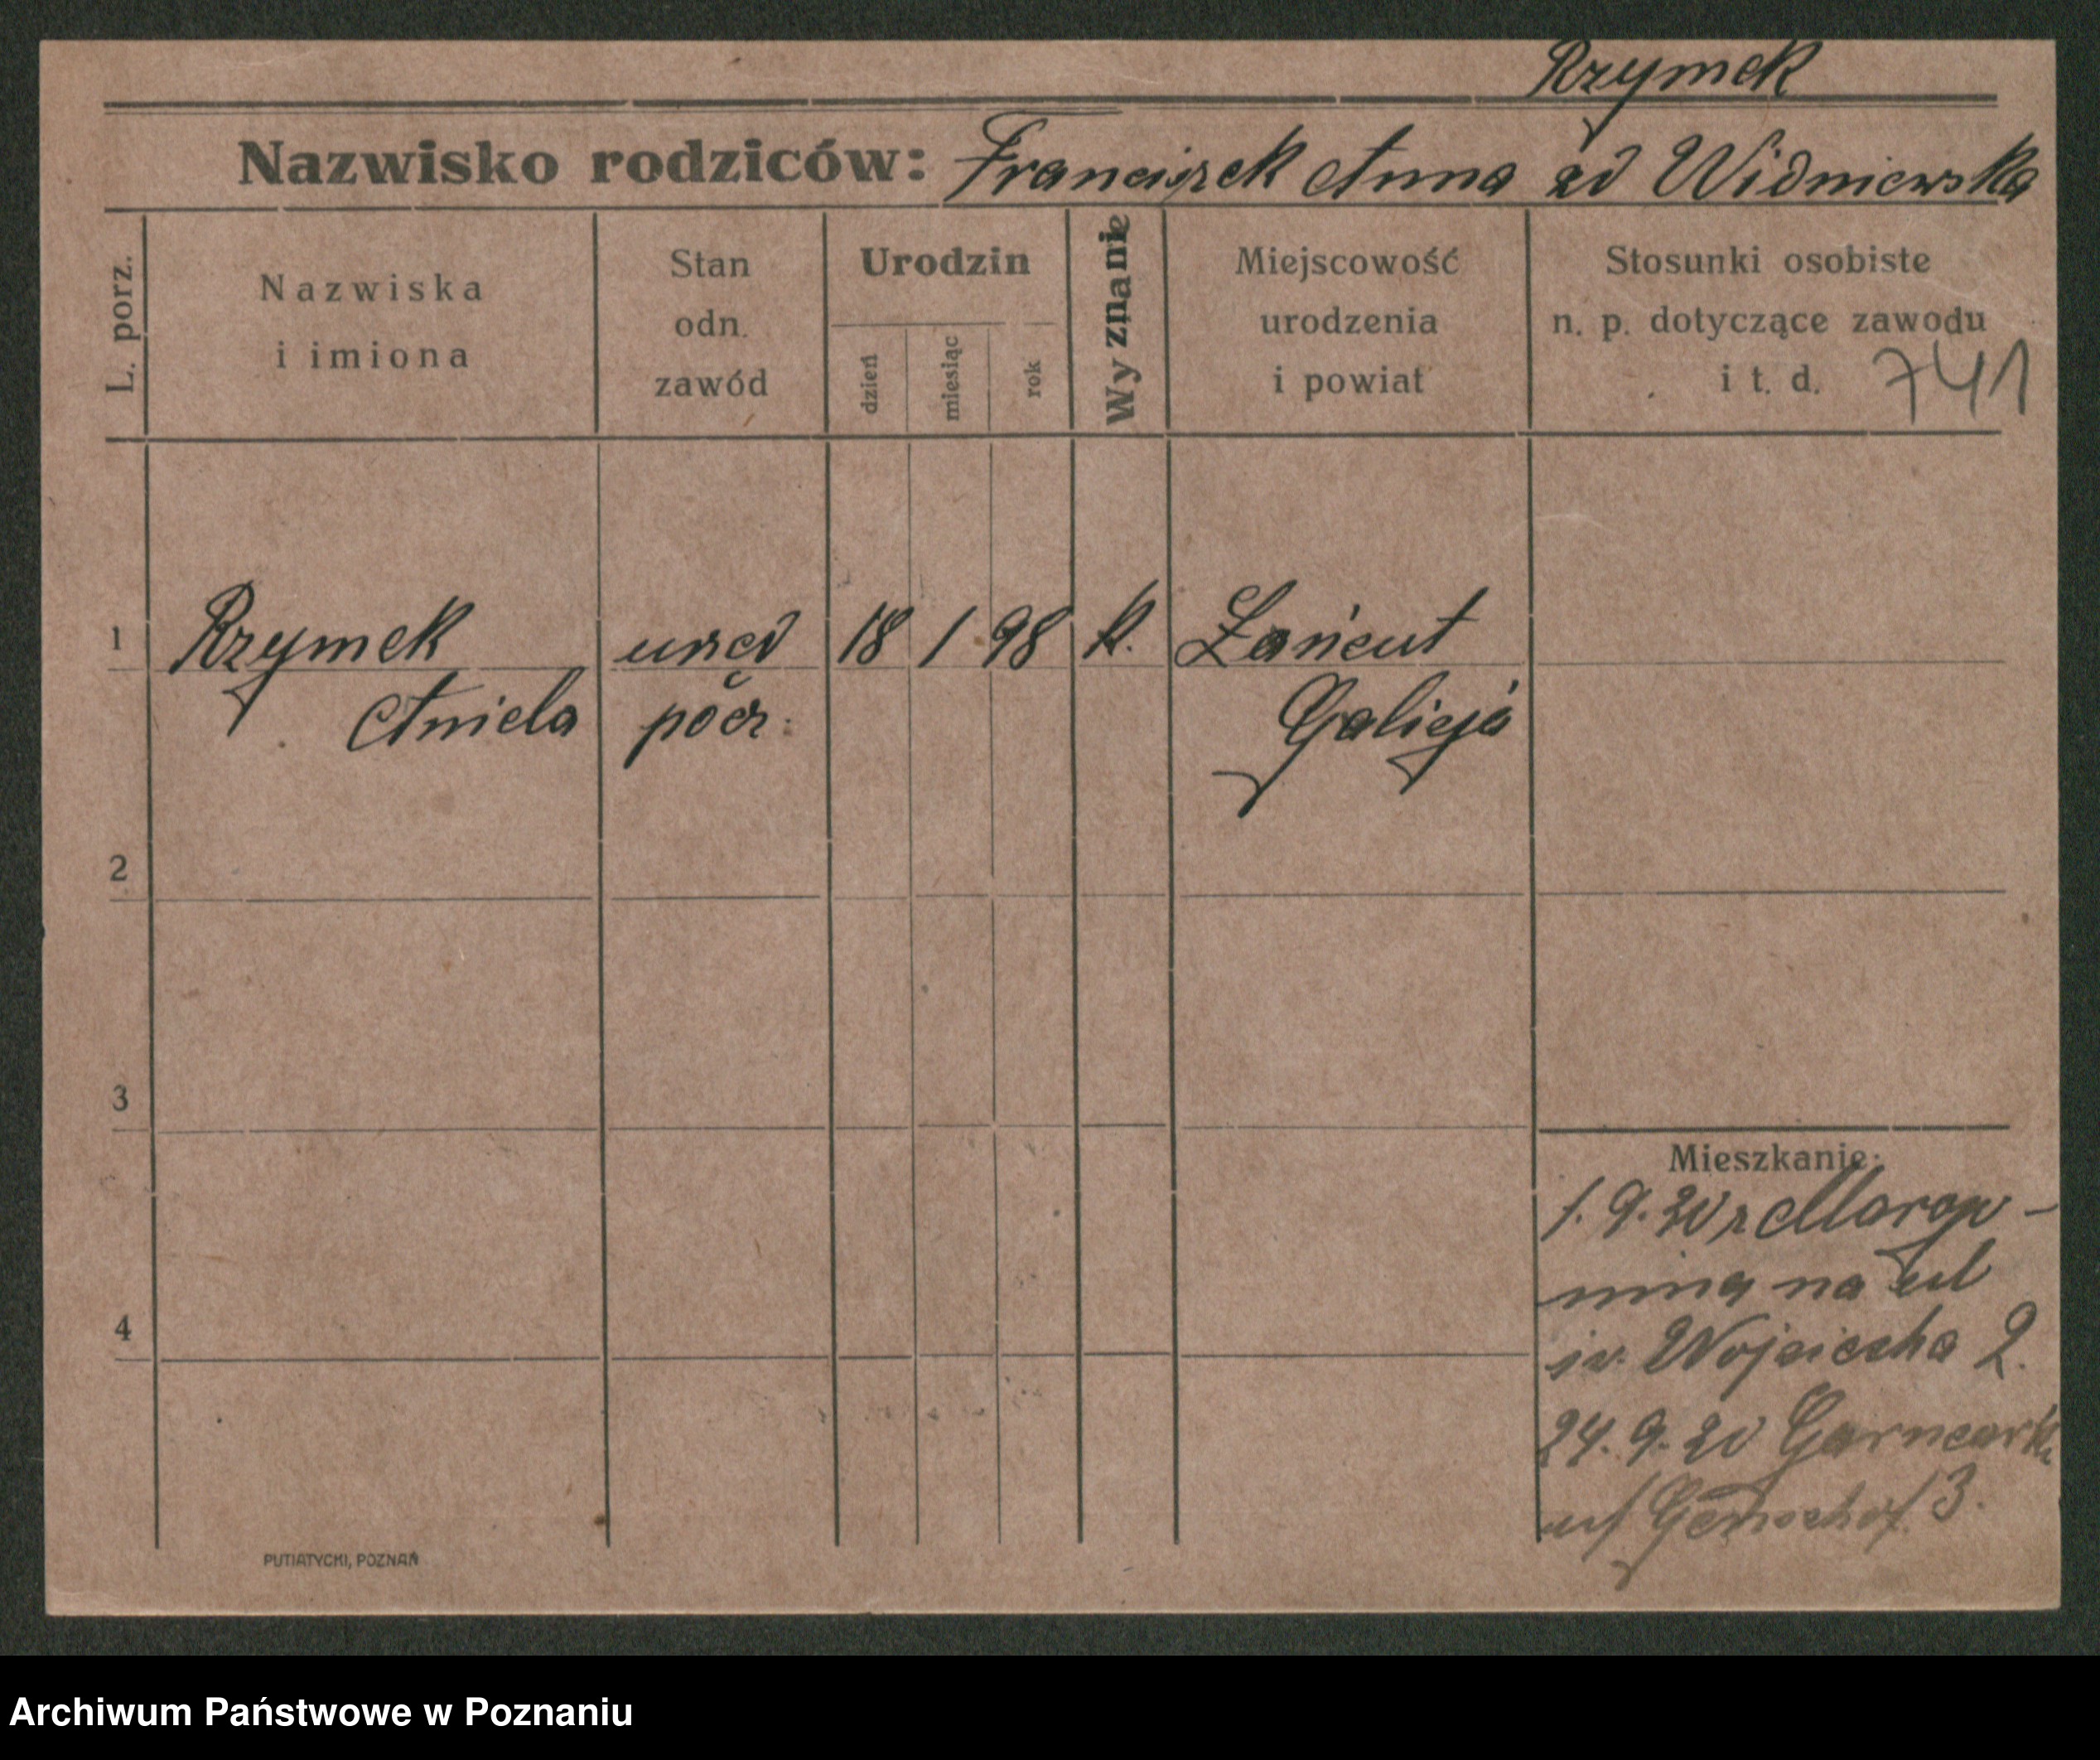 Rzymek
Nazwisko rodziców: Franciszek Anna zd Widniewska
L. porz.
Nazwiska
i imiona
Stan
odn.
zawód
Urodzin
dzień
miesiąc
rok
Wyznanie
Miejscowość
urodzenia
i powiat
Stosunki osobiste
n. p. dotyczące zawodu
i t. d. 741
1 Rzymek urzed 18 1 98 k. Łańcut
Aniela pócz. Galicja
2
3
4
Mieszkanie:
1. 9. 20 z
na ul
św. Wojciecha 2.
24. 9. 20 Garncark
3.
PUTIATYCKI, POZNAŃ
Archiwum Państwowe w Poznaniu